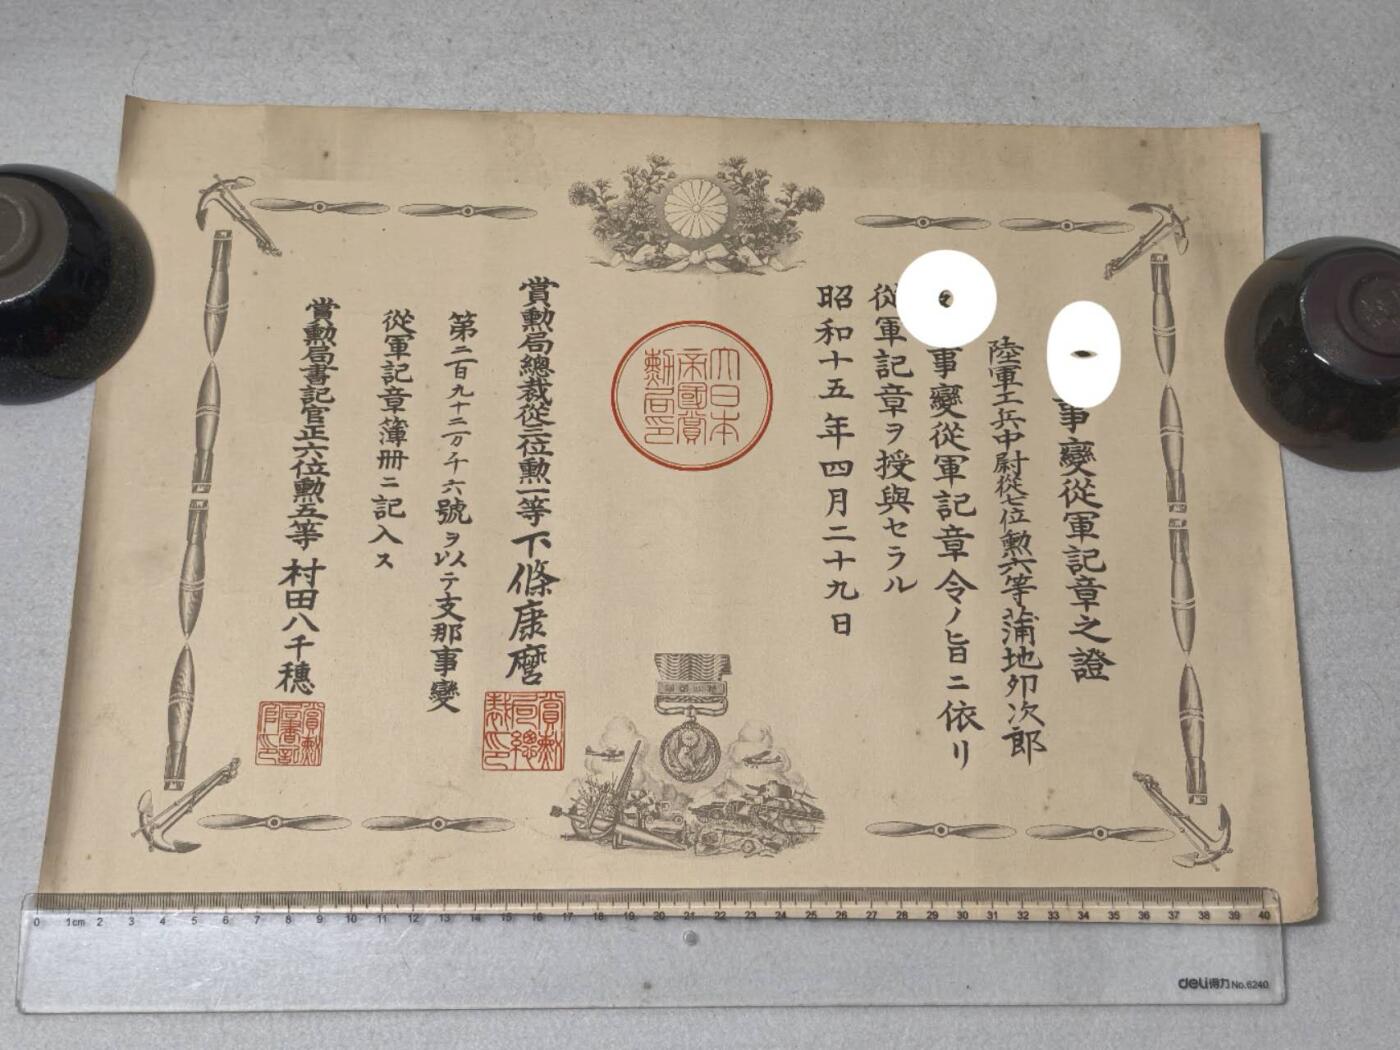 事變從軍記章之證
陸軍工兵中尉從七位勲六等蒲地卯次郎
事變從軍記章令ノ旨ニ依リ
從軍記章ヲ授與セラル
昭和十五年四月二十九日
大日本
帝國賞
勲局印
賞勲局總裁從三位勲一等下條康麿
賞勲
局總
裁印
第二百九十二万千六號ヲ以テ支那事變
從軍記章簿册ニ記入ス
賞勲局書記官正六位勲五等村田八千穗
賞勲
局書記
官印
0 1cm 2 3 4 5 6 7 8 9 10 11 12 13 14 15 16 17 18 19 20 21 22 23 24 25 26 27 28 29 30 31 32 33 34 35 36 37 38 39 40
deli得力 No.6240